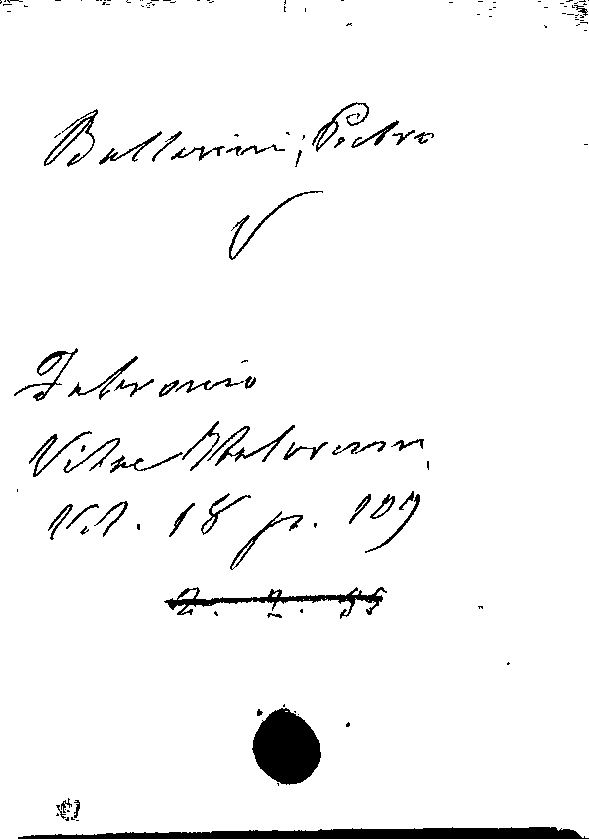 Ballerini, Pietro
V
Fabronio
Vitae Italorum,
Vol. 18 p. 109
2. 2. 55